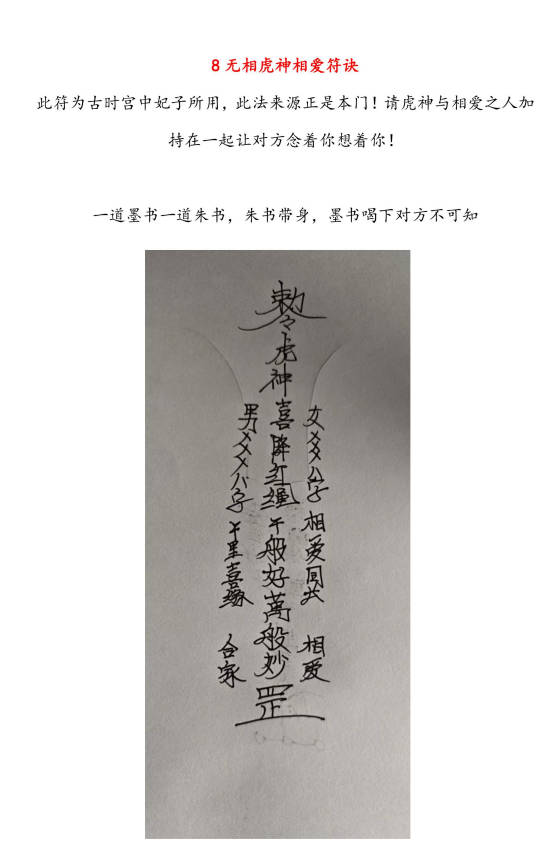 8 无相虎神相爱符诀
此符为古时宫中妃子所用，此法来源正是本门！请虎神与相爱之人加
持在一起让对方念着你想着你！
一道墨书一道朱书，朱书带身，墨书喝下对方不可知
勅令虎神喜降红绳千般好萬般妙罡
女XXX八字 相爱同共 相爱
男XXX八字 千里喜缘 合家